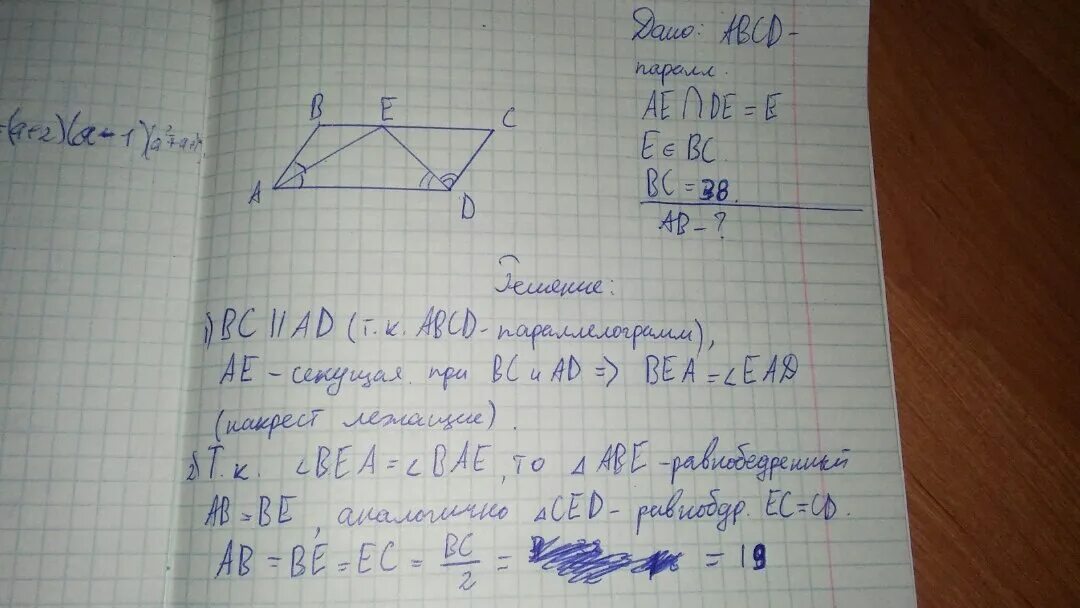 Дано: ABCD-
паралл.
AE ∩ DE = E
E ∈ BC.
BC = 38.
AB - ?
=(a+2)(a-1)(a²+a+
B E C
A D
Решение:
1) BC || AD (т.к. ABCD-параллелограмм),
AE - секущая при BC и AD => BEA = ∠EAD
(накрест лежащие).
2) Т.к. ∠BEA = ∠BAE, то △ABE-равнобедренный
AB = BE, аналогично △CED- равнобдр. EC=CD.
AB = BE = EC = BC/2 = = 19